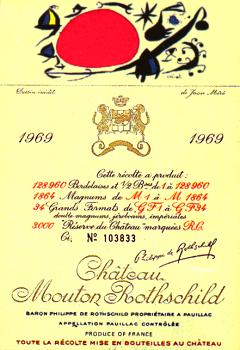 Dessin inédit de Joan Miró
1969 1969
Cette récolte a produit:
128960 Bordelaises et 1/2 Btes de 1 à 128960
1864 Magnums de M 1 à M 1864
34 Grands Formats de GF1 à GF34
double magnums, jéroboams, impériales
3000 Réserve du Château marquées R.C.
Ci, Nº 103833
Philippe de Rothschild
Château
Mouton Rothschild
BARON PHILIPPE DE ROTHSCHILD PROPRIÉTAIRE A PAUILLAC
APPELLATION PAUILLAC CONTRÔLÉE
PRODUCE OF FRANCE
TOUTE LA RÉCOLTE MISE EN BOUTEILLES AU CHÂTEAU